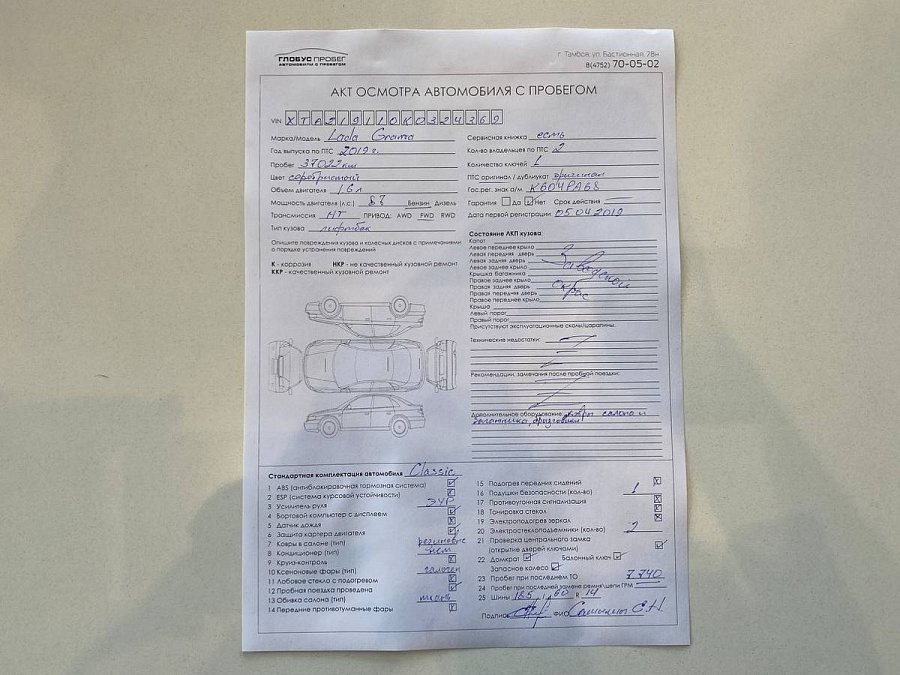 ГЛОБУС ПРОБЕГ
АВТОМОБИЛИ С ПРОБЕГОМ
г. Тамбов, ул. Бастионная, 28н
8(4752) 70-05-02
АКТ ОСМОТРА АВТОМОБИЛЯ С ПРОБЕГОМ
VIN XTA219110K0324369
Марка/Модель Lada Granta
Год выпуска по ПТС 2019 г.
Пробег 37022 км
Цвет серебристый
Объем двигателя 1,6 л
Мощность двигателя (л.с.) 87 Бензин Дизель
Трансмиссия МТ ПРИВОД: AWD FWD RWD
Тип кузова лифтбак
Опишите повреждения кузова и колесных дисков с примечаниями
о порядке устранения повреждений
К - коррозия НКР - не качественный кузовной ремонт
ККР - качественный кузовной ремонт
Сервисная книжка есть
Кол-во владельцев по ПТС 2
Количество ключей 1
ПТС оригинал / дубликат оригинал
Гос.рег. знак а/м К604РА68
Гарантия Да Нет Срок действия
Дата первой регистрации 05.04.2019
Состояние ЛКП кузова:
Капот
Левое переднее крыло
Левая передняя дверь
Левая задняя дверь
Левое заднее крыло
Крышка багажника
Правое заднее крыло
Правая задняя дверь
Правая передняя дверь
Правое переднее крыло
Крыша
Левый порог
Правый порог
Заводской
окрас
Присутствуют эксплуатационные сколы/царапины.
Технические недостатки:
Рекомендации, замечания после пробной поездки:
Дополнительное оборудование: ковры салона и
багажника, брызговики
Стандартная комплектация автомобиля Classic
1 ABS (антиблокировочная тормозная система)
2 ESP (система курсовой устойчивости)
3 Усилитель руля ЭУР
4 Бортовой компьютер с дисплеем
5 Датчик дождя
6 Защита картера двигателя
7 Ковры в салоне (тип) резиновые
8 Кондиционер (тип) нет
9 Круиз-контроль
10 Ксеноновые фары (тип) галоген
11 Лобовое стекло с подогревом
12 Пробная поездка проведена
13 Обивка салона (тип) ткань
14 Передние противотуманные фары
15 Подогрев передних сидений
16 Подушки безопасности (кол-во) 1
17 Противоугонная сигнализация
18 Тонировка стекол
19 Электроподогрев зеркал
20 Электростеклоподъемники (кол-во) 2
21 Проверка центрального замка
(открытие дверей ключами)
22 Домкрат Балонный ключ
Запасное колесо
23 Пробег при последнем ТО 7.740
24 Пробег при последней замене ремня/цепи ГРМ
25 Шины 185 / 60 R 14
Подпись ФИО